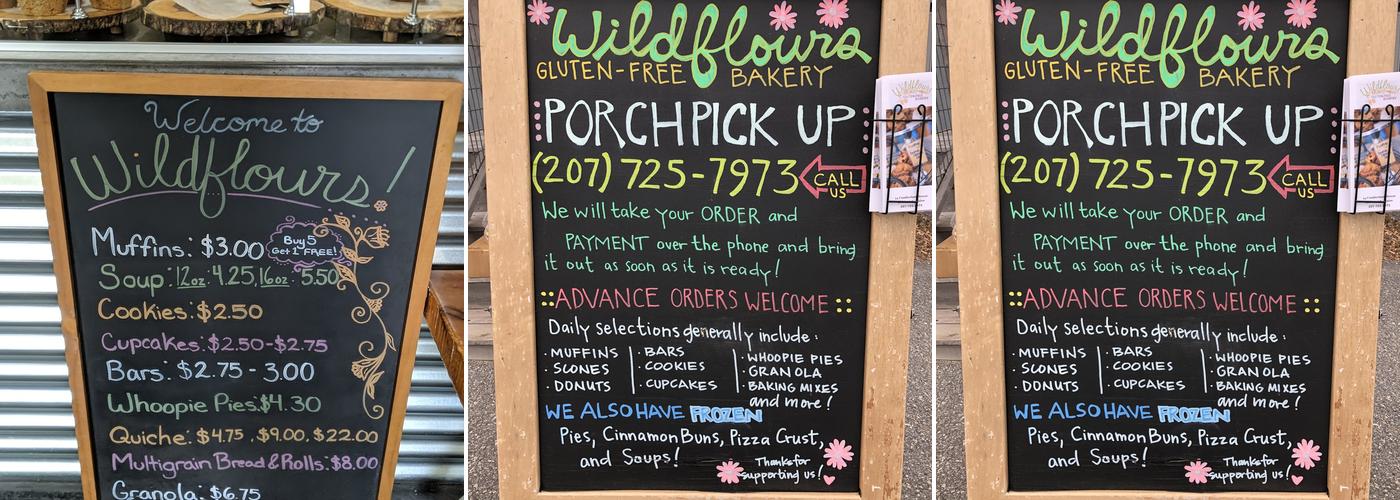 Welcome to
Wildflours!
Muffins: $3.00
Buy 5
Get 1 FREE!
Soup: 12oz: 4.25, 16oz: 5.50
Cookies: $2.50
Cupcakes: $2.50-$2.75
Bars: $2.75 - 3.00
Whoopie Pies: $4.30
Quiche: $4.75, $9.00, $22.00
Multigrain Bread & Rolls: $8.00
Granola: $6.75
Wildflours
GLUTEN-FREE BAKERY
PORCH PICK UP
(207) 725-7973
CALL
US
We will take your ORDER and
PAYMENT over the phone and bring
it out as soon as it is ready!
ADVANCE ORDERS WELCOME
Daily selections generally include:
· MUFFINS
· SCONES
· DONUTS
· BARS
· COOKIES
· CUPCAKES
· WHOOPIE PIES
· GRANOLA
· BAKING MIXES
and more!
WE ALSO HAVE FROZEN
Pies, Cinnamon Buns, Pizza Crust,
and Soups!
Thanks for
supporting us!
Wildflours
GLUTEN-FREE BAKERY
PORCH PICK UP
(207) 725-7973
CALL
US
We will take your ORDER and
PAYMENT over the phone and bring
it out as soon as it is ready!
ADVANCE ORDERS WELCOME
Daily selections generally include:
· MUFFINS
· SCONES
· DONUTS
· BARS
· COOKIES
· CUPCAKES
· WHOOPIE PIES
· GRANOLA
· BAKING MIXES
and more!
WE ALSO HAVE FROZEN
Pies, Cinnamon Buns, Pizza Crust,
and Soups!
Thanks for
supporting us!